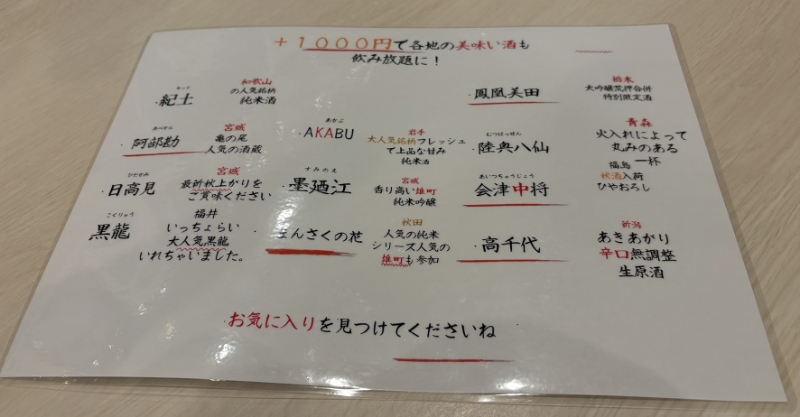 +1000円で各地の美味い酒も
飲み放題に！
きっど
・紀土
和歌山
の人気銘柄
純米酒
・鳳凰美田
栃木
大吟醸荒押合併
特別限定酒
あべかん
・阿部勘
宮城
亀の尾
人気の酒蔵
あかぶ
・AKABU
岩手
大人気銘柄フレッシュ
で上品な甘み
純米酒
むつはっせん
・陸奥八仙
青森
火入れによって
丸みのある
一杯
ひたかみ
・日高見
宮城
最新秋上がりを
ご賞味ください
すみのえ
・墨廼江
宮城
香り高い雄町
純米吟醸
あいづちゅうじょう
・会津中将
福島
秋酒入荷
ひやおろし
こくりゅう
黒龍
福井
いっちょらい
大人気黒龍
いれちゃいました。
まんさくの花
秋田
人気の純米
シリーズ人気の
雄町も参加
・高千代
新潟
あきあかり
辛口無調整
生原酒
お気に入りを見つけてくださいね